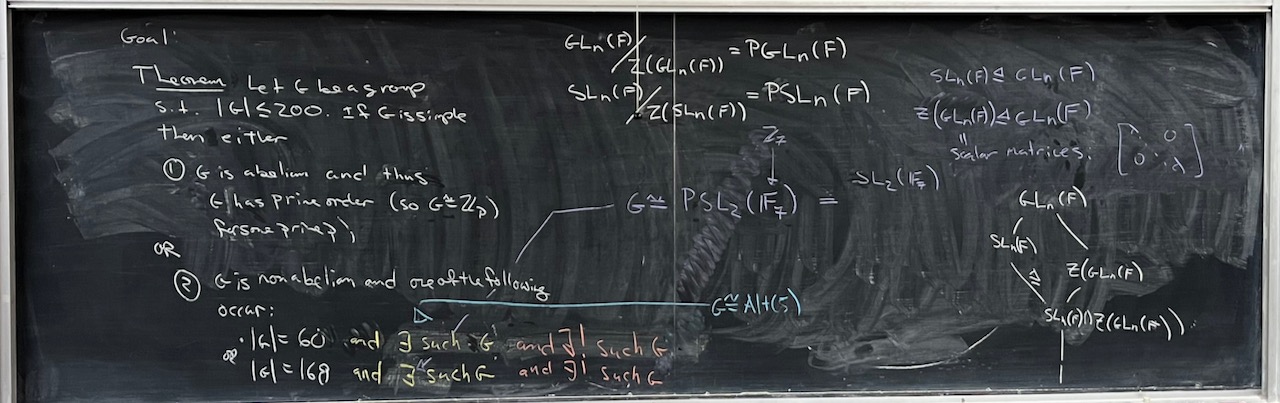 Goal:
Theorem Let G be a group
s.t. |G| ≤ 200. If G is simple
then either
① G is abelian and thus
G has prime order (so G ≅ Z_p)
for some prime p),
OR
② G is nonabelian and one of the following
occur:
· |G| = 60 and ∃ such G and ∃! such G.
or
· |G| = 168 and ∃ such G and ∃! such G
G ≅ Alt(5)
GL_n(F)/Z(GL_n(F)) = PGL_n(F)
SL_n(F)/Z(SL_n(F)) = PSL_n(F)
Z_7
G ≅ PSL_2(F_7) =
SL_2(F_7)
SL_n(F) ⊴ GL_n(F)
Z(GL_n(F)) ⊴ GL_n(F)
=
scalar matrices.
[λ 0
0 ⋱ λ]
GL_n(F)
SL_n(F)
Z(GL_n(F)
⊴
SL_n(F) ∩ Z(GL_n(F))